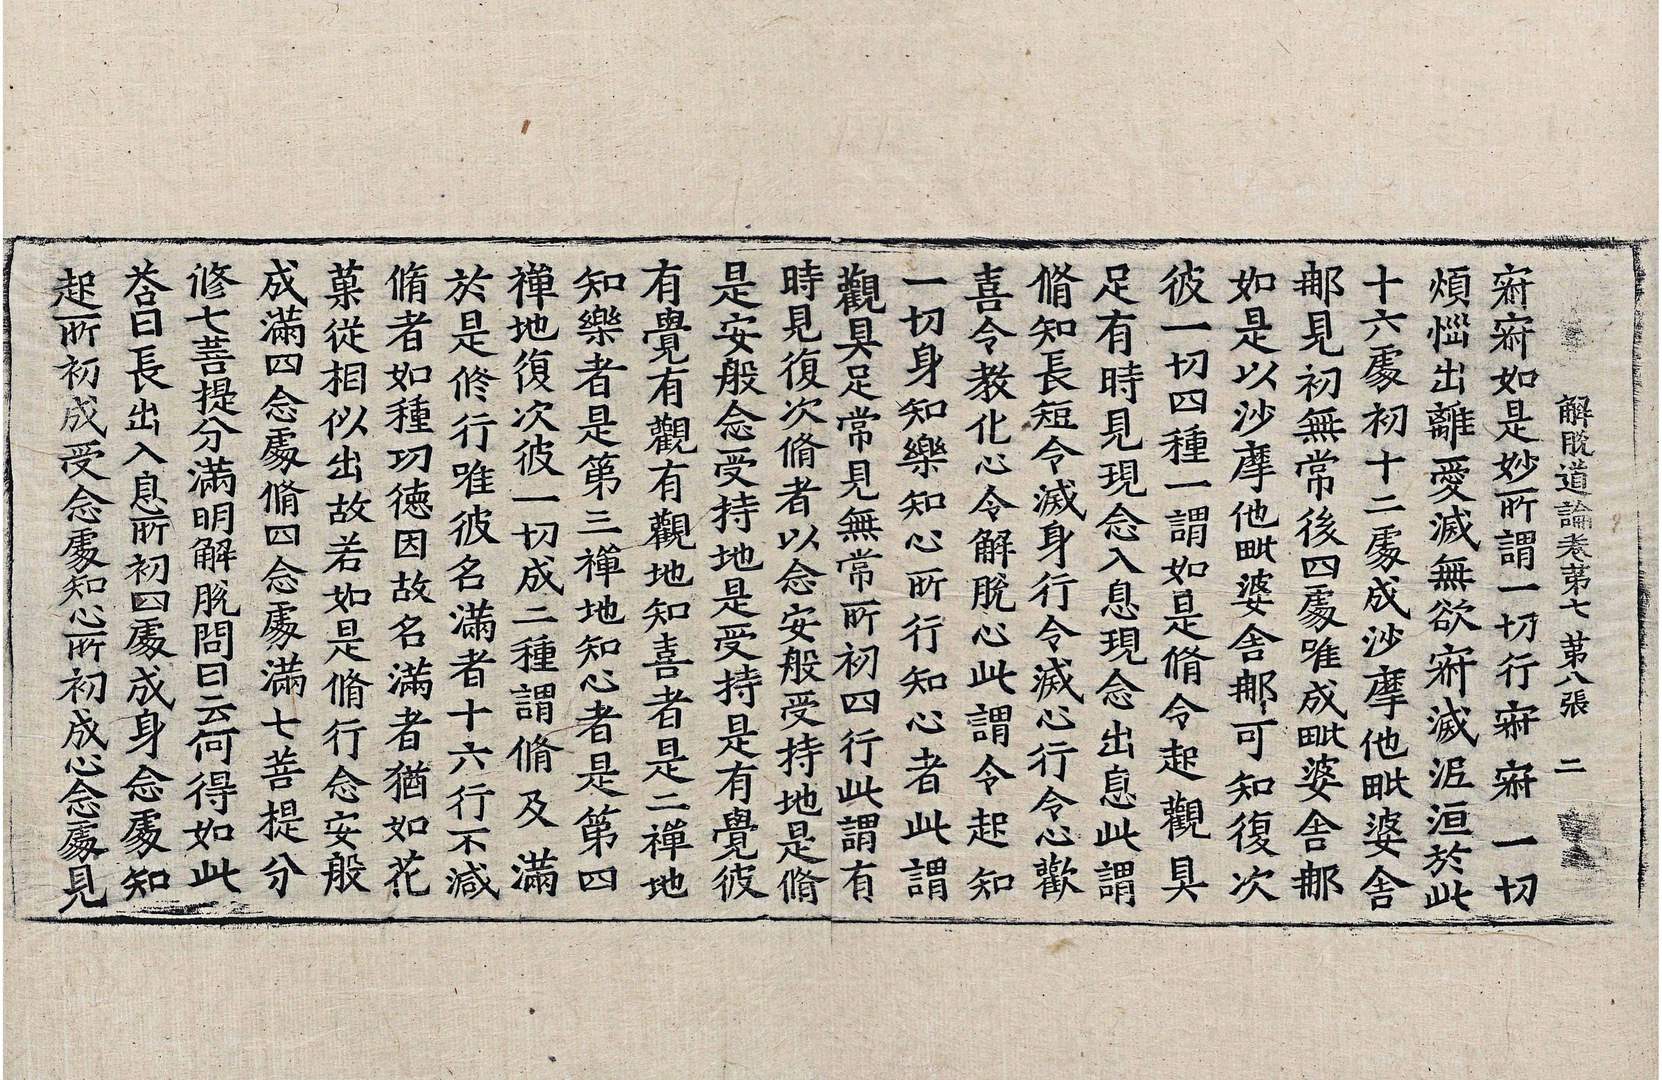 解脫道論卷第七　第八張　二
寂寂如是妙所謂一切行寂寂一切
煩惱出離愛滅無欲寂滅泥洹於此
十六處初十二處成沙摩他毗婆舍
那見初無常後四處唯成毗婆舍那
如是以沙摩他毗婆舍那可知復次
彼一切四種一謂如是脩令起觀具
足有時見現念入息現念出息此謂
脩知長短令滅身行令滅心行令心歡
喜令教化心令解脫心此謂令起知
一切身知樂知心所行知心者此謂
觀具足常見無常所初四行此謂有
時見復次脩者以念安般受持地是脩
是安般念受持地是受持是有覺彼
有覺有觀有觀地知喜者是二禪地
知樂者是第三禪地知心者是第四
禪地復次彼一切成二種謂脩及滿
於是修行唯彼名滿者十六行不減
脩者如種功德因故名滿者猶如花
菓從相似出故若如是脩行念安般
成滿四念處脩四念處滿七菩提分
修七菩提分滿明解脫問曰云何得如此
荅曰長出入息所初四處成身念處知
起所初成受念處知心所初成心念處見